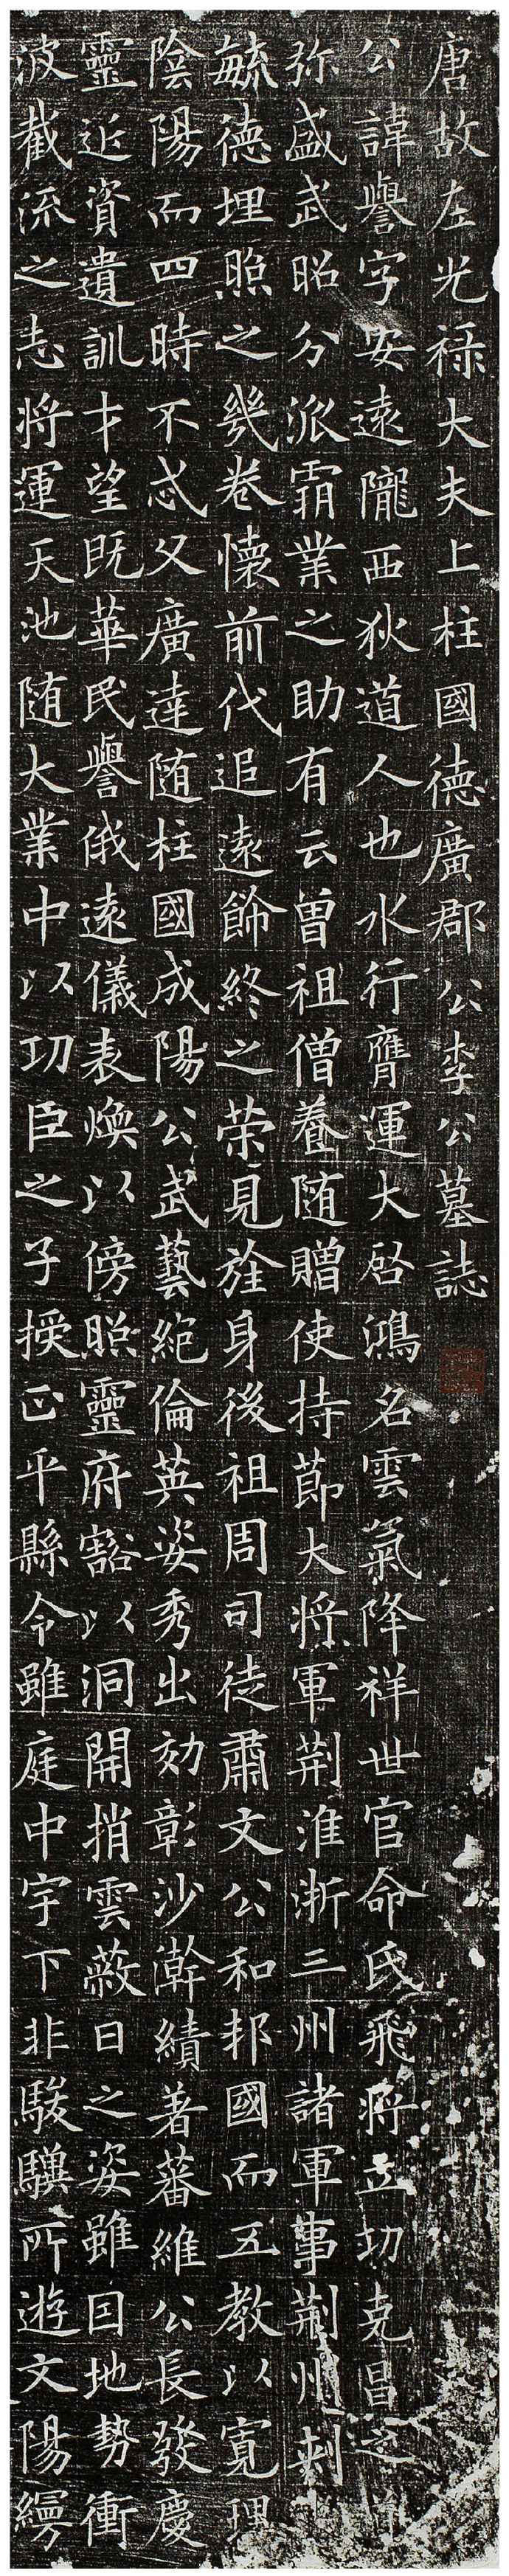 唐故左光祿大夫上柱國德廣郡公李公墓誌
公諱譽字安遠隴西狄道人也水行膺運大啓鴻名雲氣降祥世官命氏飛將立功克昌之
弥盛武昭分派霸業之助有云曾祖僧養随贈使持節大將軍荆淮浙三州諸軍事荆州刺
毓德埋照之幾卷懷前代追遠飾終之荣見旌身後祖周司徒肅文公和邦國而五教以寬理
陰陽而四時不忒父廣達随柱國成陽公武藝絶倫英姿秀出効彰沙漧績著蕃維公長發慶
靈近資遺訓才望既華民譽俄遠儀表煥以傍照靈府豁以洞開捎雲蔽日之姿雖因地勢衝
波截流之志將運天池随大業中以功臣之子授正平縣令雖庭中宇下非駿驥所遊文陽縵